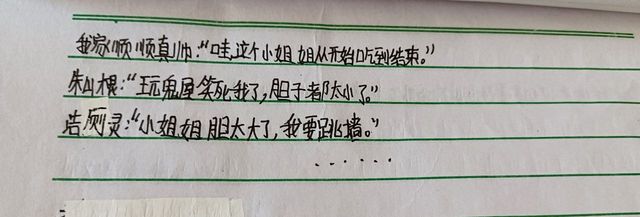 我家顺顺真帅:“哇,这个小姐姐从开始吃到结束。”
朱山棍:“玩鬼屋笑死我了,胆子都太小了。”
告厕灵:“小姐姐胆太大了,我要跳墙。”
······